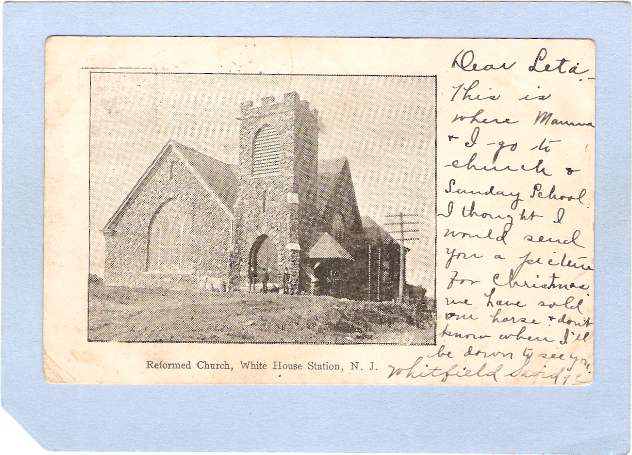 Dear Leta,
This is
where Mamma
& I go to
church &
Sunday School.
I thought I
would send
you a picture
for Christmas
we have sold
our horse & don't
know when I'll
be down to see you.
Whitfield
Reformed Church, White House Station, N. J.